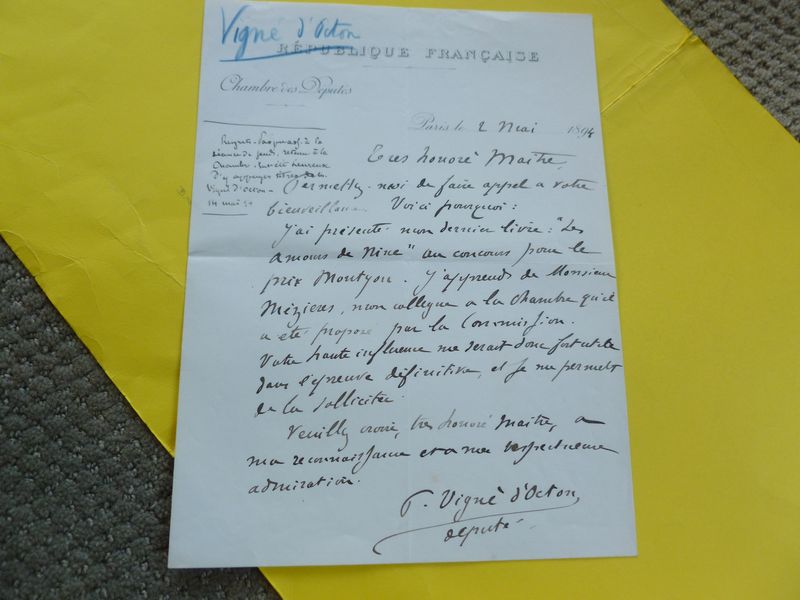 Vigné d'Octon
RÉPUBLIQUE FRANÇAISE
Chambre des Députés
Paris le 2 Mai 1894
séance de jeudi, retenu à la
Chambre
d'y appuyer
Vigné d'Octon -
14 mai
Très honoré Maître,
Permettez-moi de faire appel a votre
bienveillance. Voici pourquoi :
J'ai présenté mon dernier livre : "Les
amours de Nine" au concours pour le
prix Montyon. J'apprends de Monsieur
Mézières, mon collegue a la Chambre qu'il
a été proposé par la Commission.
Votre haute influence me serait donc fort utile
dans l'épreuve définitive, et je me permets
de la solliciter.
Veuillez croire, très honoré Maitre, a
ma reconnaissance et a ma respectueuse
admiration.
P. Vigné d'Octon
député